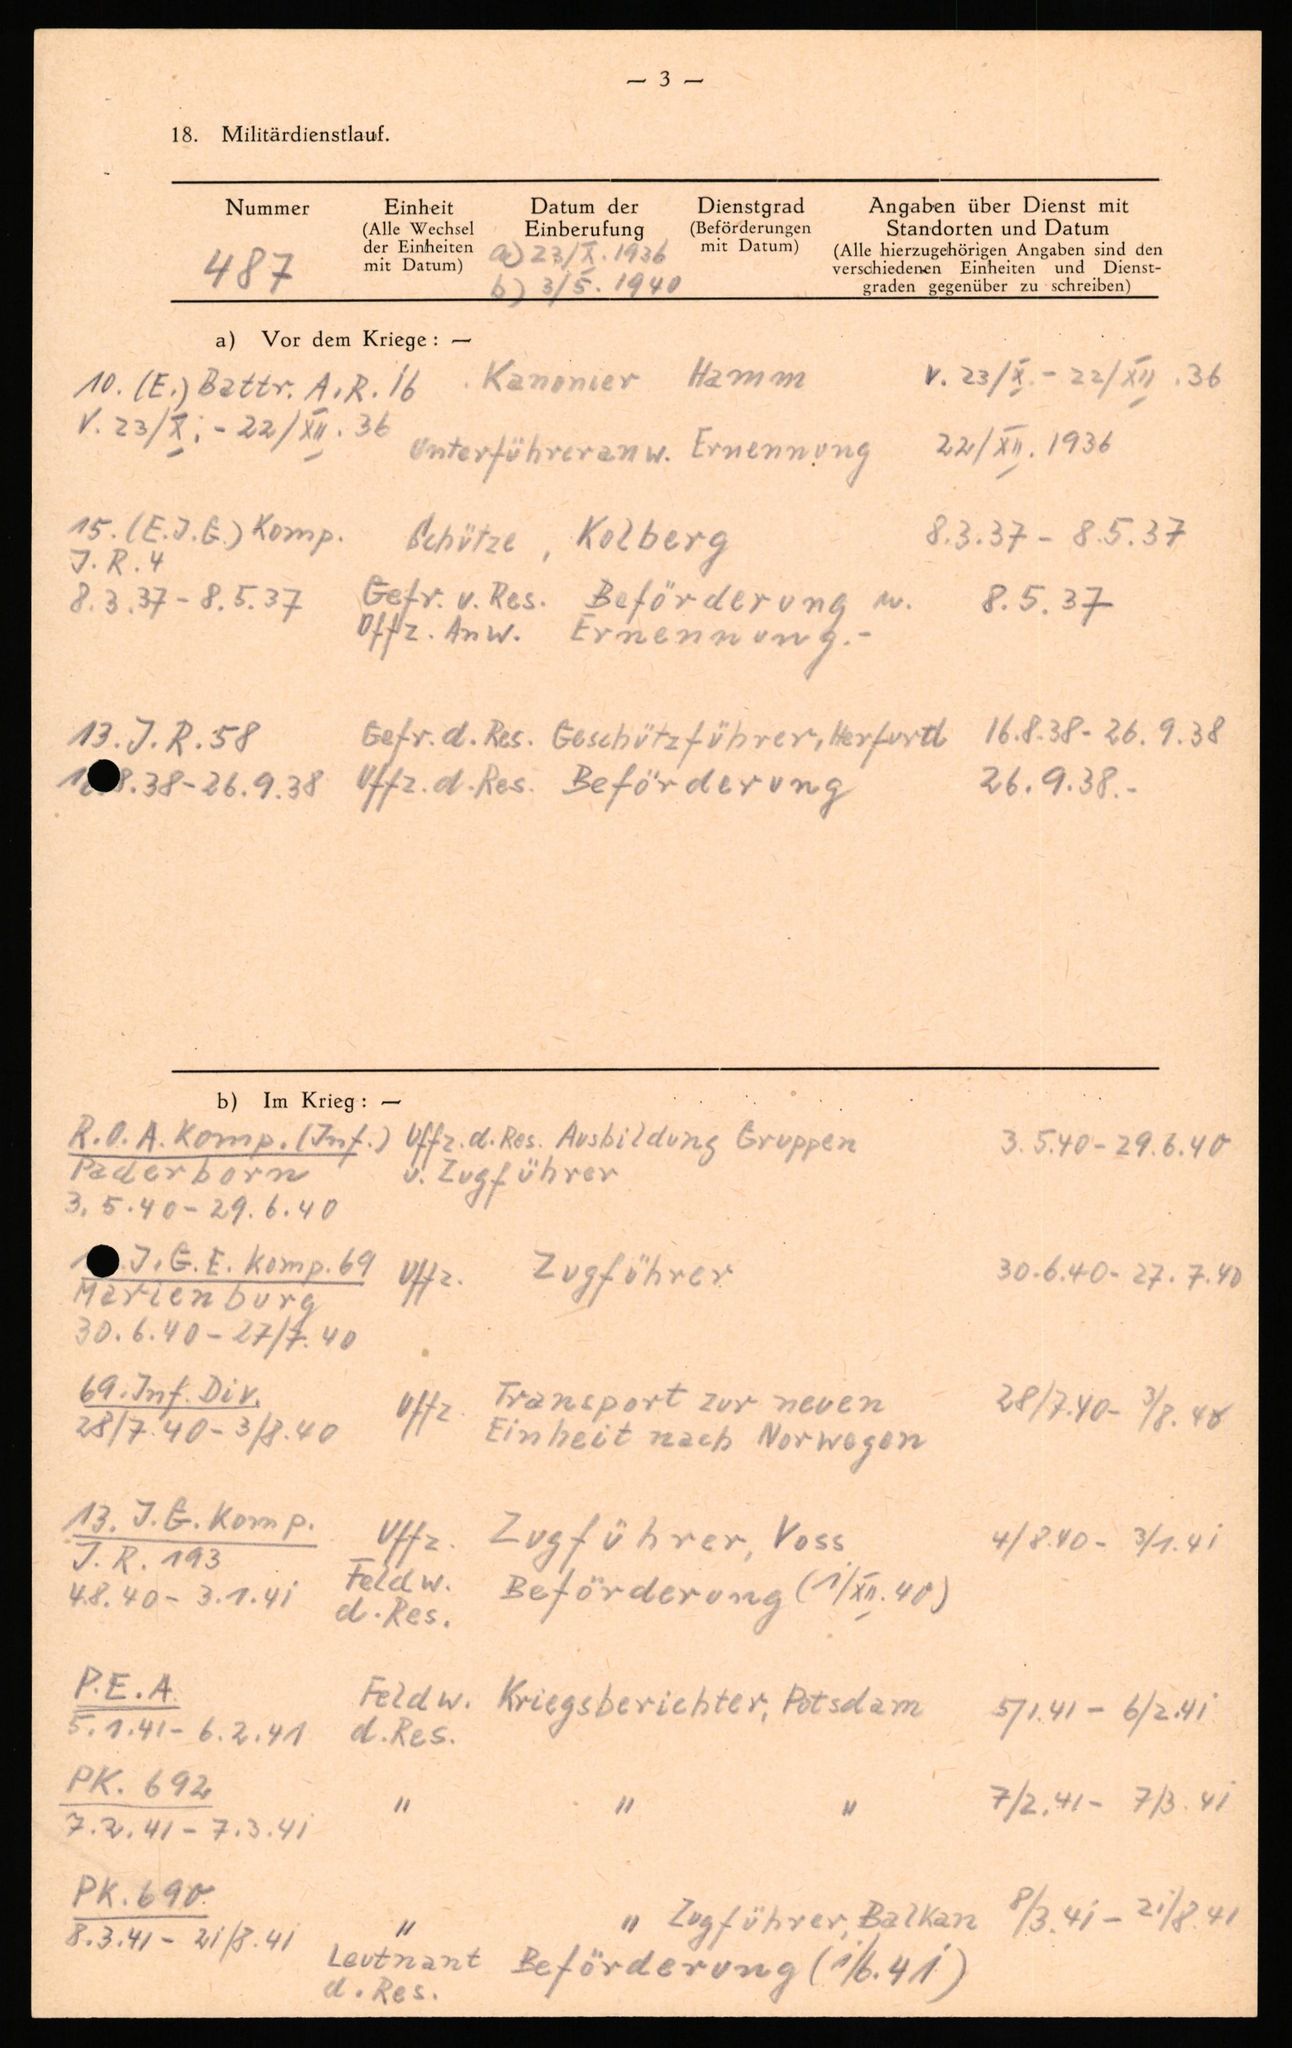 — 3 —
18. Militärdienstlauf.
Nummer
487
Einheit
(Alle Wechsel
der Einheiten
mit Datum)
Datum der
Einberufung
a) 23/X. 1936
b) 3/5. 1940
Dienstgrad
(Beförderungen
mit Datum)
Angaben über Dienst mit
Standorten und Datum
(Alle hierzugehörigen Angaben sind den
verschiedenen Einheiten und Dienst-
graden gegenüber zu schreiben)
a) Vor dem Kriege: —
10. (E.) Battr. A.R. 16 Kanonier Hamm v. 23/X. - 22/XII. 36
V. 23/X. - 22/XII. 36
Unterführeranw. Ernennung 22/XII. 1936
15. (E.J.G.) Komp. Schütze, Kolberg 8.3.37 - 8.5.37
J.R. 4
8.3.37 - 8.5.37 Gefr. u. Res. Beförderung u. 8.5.37
Offz. Anw. Ernennung.-
13. J.R. 58 Gefr. d. Res. Geschützführer, Herford 16.8.38 - 26.9.38
8.38 - 26.9.38 Uffz. d. Res. Beförderung 26.9.38.-
b) Im Krieg: —
R.O.A. Komp. (Inf.) Uffz. d. Res. Ausbildung Gruppen 3.5.40 - 29.6.40
Paderborn u. Zugführer
3.5.40 - 29.6.40
J.G.E. Komp. 69 Uffz. Zugführer 30.6.40 - 27.7.40
Marienburg
30.6.40 - 27/7.40
69. Inf. Div. Uffz. Transport zur neuen 28/7.40 - 3/8.40
28/7.40 - 3/8.40 Einheit nach Norwegen
13. J.G. Komp. Uffz. Zugführer, Voss 4/8.40 - 3/1.41
J.R. 193
4.8.40 - 3.1.41 Feldw. Beförderung (1/XII.40)
d. Res.
P.E.A. Feldw. Kriegsberichter, Potsdam 5/1.41 - 6/2.41
5.1.41 - 6.2.41 d. Res.
PK. 692 " " " 7/2.41 - 7/3.41
7.2.41 - 7.3.41
PK. 690. " " Zugführer, Balkan 8/3.41 - 21/8.41
8.3.41 - 21/8.41
Leutnant Beförderung (1/6.41)
d. Res.